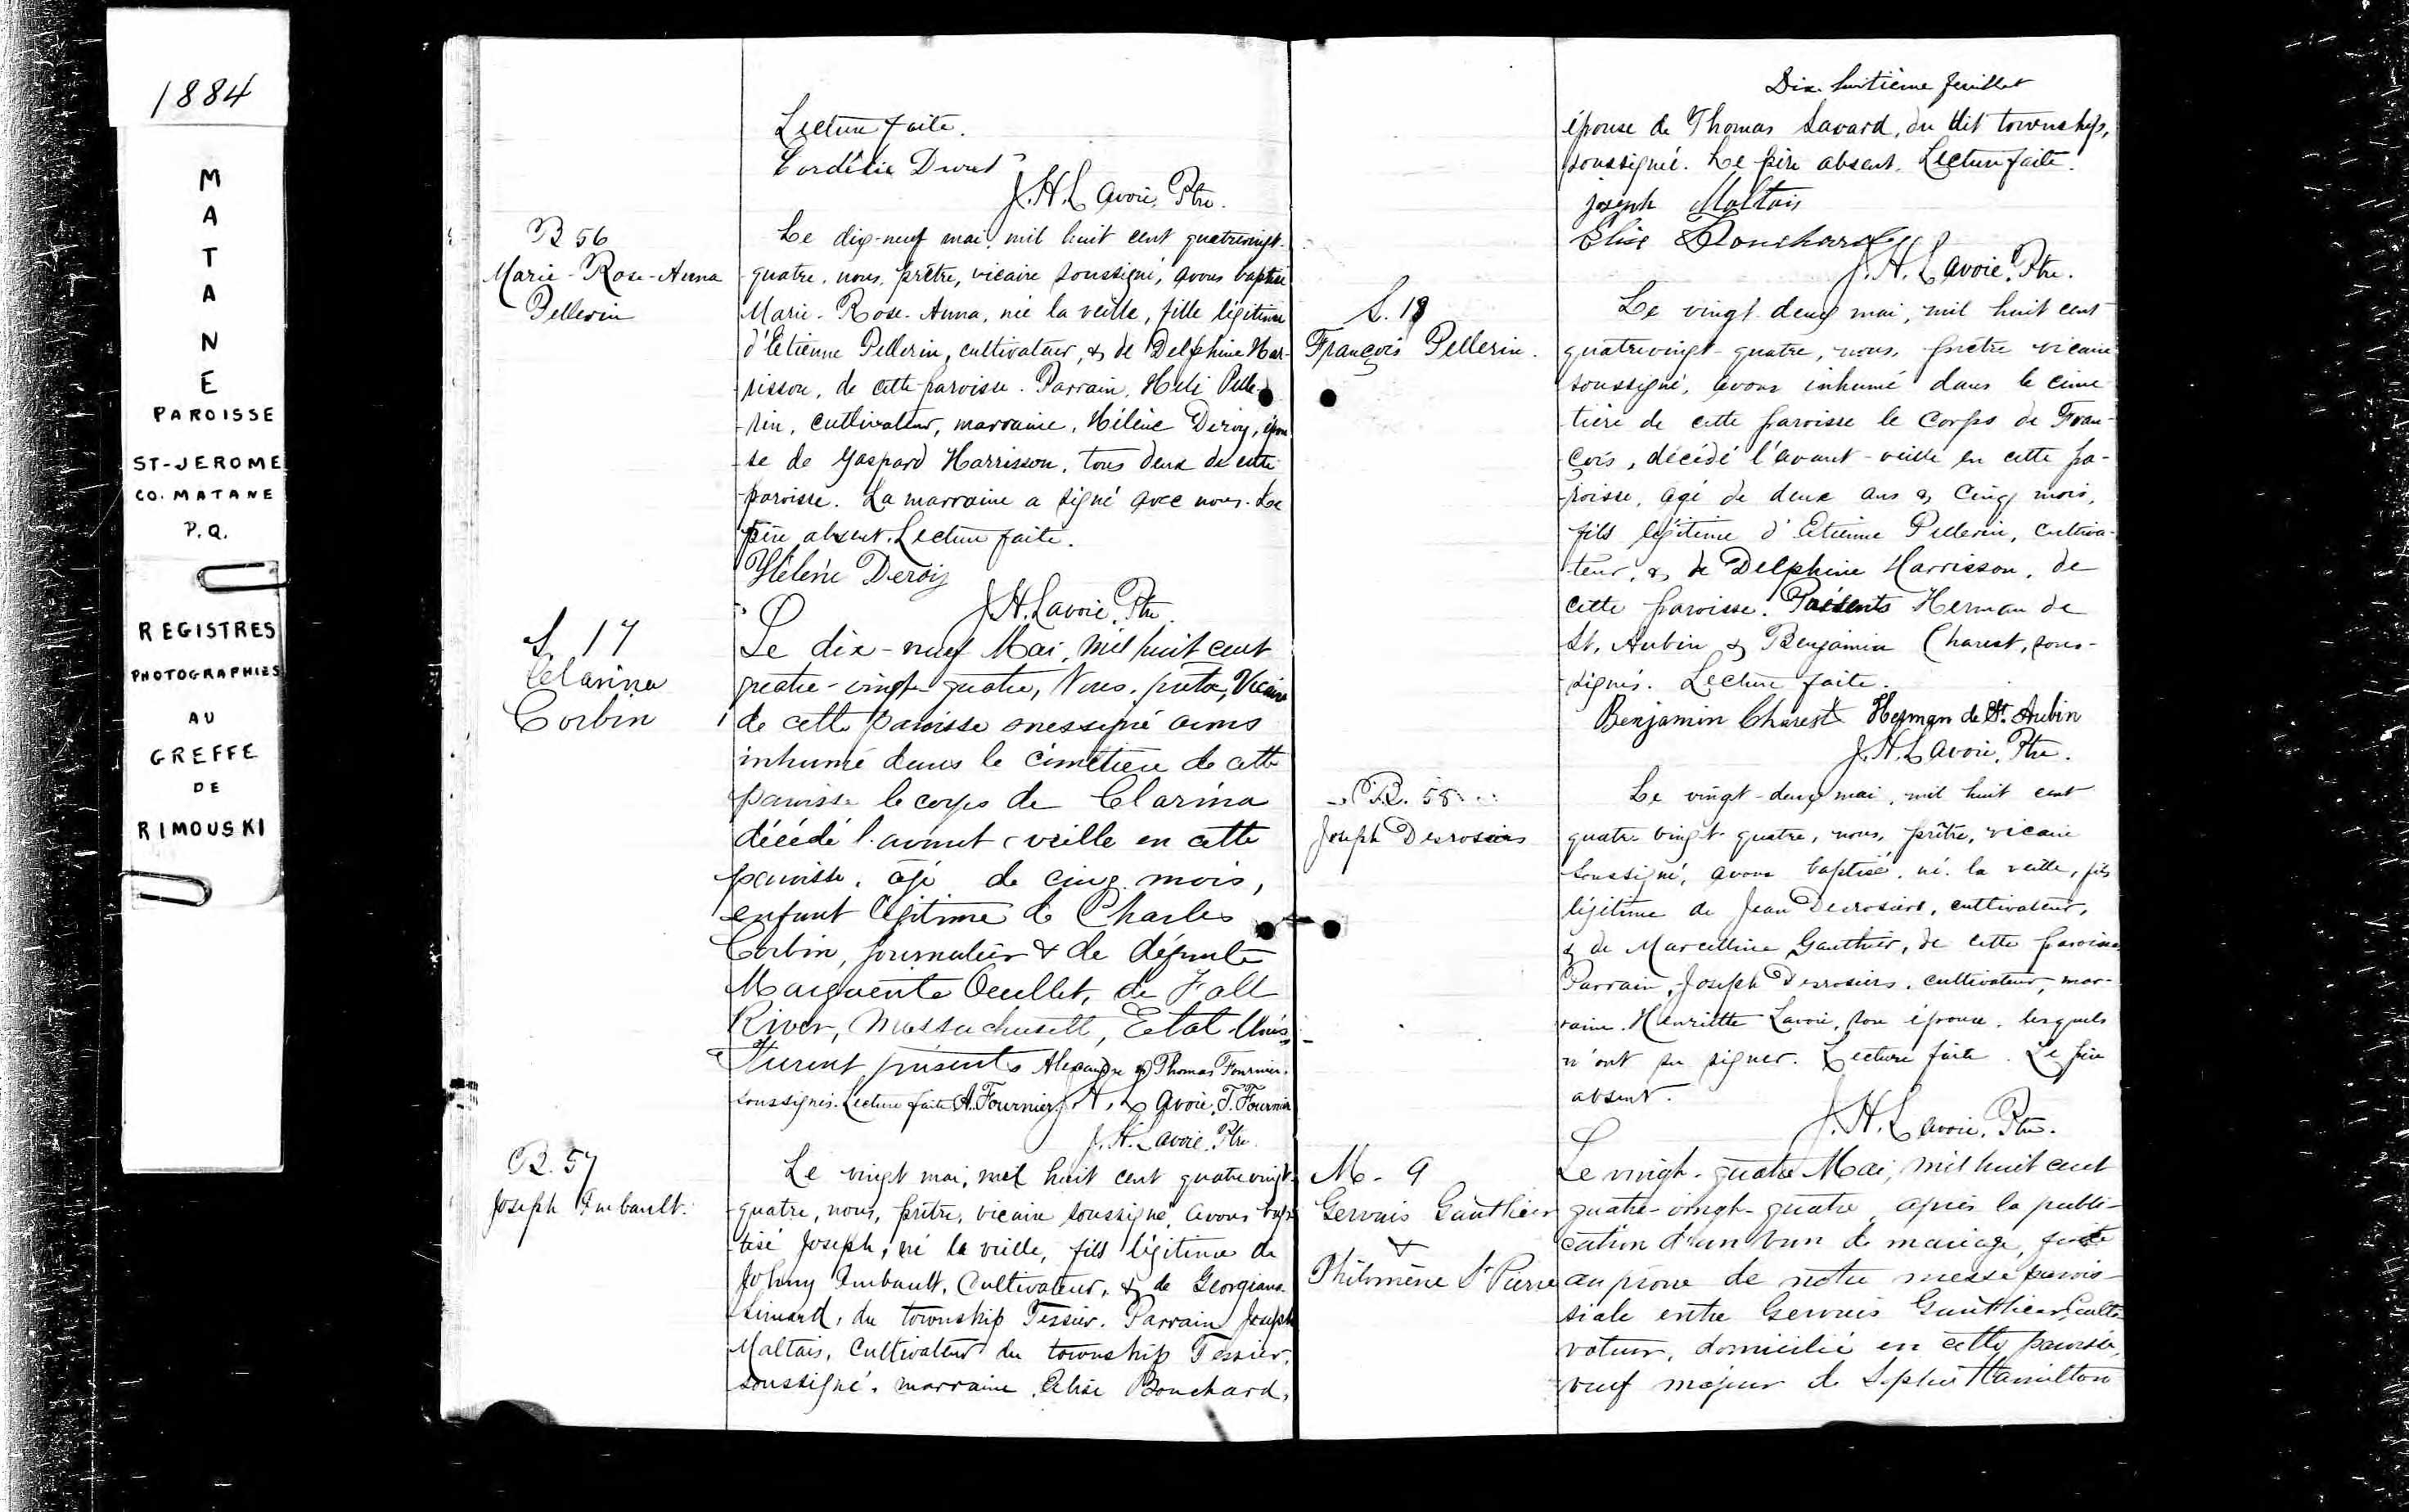 1884
M
A
T
A
N
E
PAROISSE
ST-JEROME
CO. MATANE
P.Q.
REGISTRES
PHOTOGRAPHIES
AU
GREFFE
DE
RIMOUSKI
Lecture faite.
Cordélie
J.H. Lavoie, Ptre.
B 56
Marie-Rose-Anna
Pellerin
Le dix-neuf mai, mil huit cent quatrevingt-
quatre, nous, prêtre, vicaire soussigné, avons baptisé
Marie-Rose-Anna, née la veille, fille légitime
d'Etienne Pellerin, cultivateur, & de Delphine Har-
risson, de cette paroisse. Parrain, Heli Pelle-
rin, cultivateur, marraine, Hélène Deroy, épou
se de Gaspard Harrisson, tous deux de cette
paroisse. La marraine a signé avec nous. Le
père absent. Lecture faite.
Hélène Deroy
J.H. Lavoie, Ptre.
S. 17
Clarina
Corbin
Le dix-neuf Mai, mil huit cent
quatre-vingt-quatre, Nous, prêtre, Vicaire
de cette paroisse avons
inhumé dans le cimetière de cette
paroisse le corps de Clarina
décédé l'avant-veille en cette
paroisse, âgé de cinq mois,
enfant légitime de Charles
Corbin, journalier & de défunte
Marguerite Ouellet, de Fall
River, Massachusett, Etat-Unis
Furent présents Alexandre & Thomas Fournier,
soussignés. Lecture faite A. Fournier J.H. Lavoie, T. Fournier
J.H. Lavoie, Ptre.
B. 57
Joseph Imbault.
Le vingt mai, mil huit cent quatrevingt-
quatre, nous, prêtre, vicaire soussigné, avons bap-
tisé Joseph, né la veille, fils légitime de
Johnny Imbault, Cultivateur, & de Georgiana
Simard, du township Tessier. Parrain Joseph
Maltais, Cultivateur du township Tessier,
soussigné, marraine, Elise Bouchard,
Dix-huitième feuillet
épouse de Thomas Savard, du dit township,
soussigné. Le père absent. Lecture faite.
joseph Maltais
Elise Bouchard
J.H. Lavoie, Ptre.
S. 18
François Pellerin.
Le vingt-deux mai, mil huit cent
quatrevingt-quatre, nous, prêtre vicaire
soussigné, avons inhumé dans le cime
tière de cette paroisse le Corps de Fran-
çois, décédé l'avant-veille en cette pa-
roisse, agé de deux ans & cinq mois,
fils légitime d'Etienne Pellerin, cultiva-
teur, & de Delphine Harrisson, de
cette paroisse. Présents Herman de
St. Aubin & Benjamin Charest, sous-
signés. Lecture faite.
Benjamin Charest Herman de St. Aubin
J.H. Lavoie, Ptre.
B. 58
Joseph Desrosiers
Le vingt-deux mai, mil huit cent
quatre vingt-quatre, nous, prêtre, vicaire
soussigné, avons baptisé, né la veille, fils
légitime de Jean Desrosiers, cultivateur,
& de Marcelline Gauthier, de cette paroisse
Parrain, Joseph Desrosiers, cultivateur, mar-
raine, Henriette Lavoie, son épouse, lesquels
n'ont su signer. Lecture faite. Le père
absent.
J.H. Lavoie, Ptre.
M. 9
Gervais Gauthier
&
Philomène St Pierre
Le vingt-quatre Mai, mil huit cent
quatre-vingt-quatre, après la publi-
cation d'un ban de mariage, faite
au prone de notre messe parois-
siale entre Gervais Gauthier, culti-
vateur, domicilié en cette paroisse,
veuf majeur de Sophie Hamilton